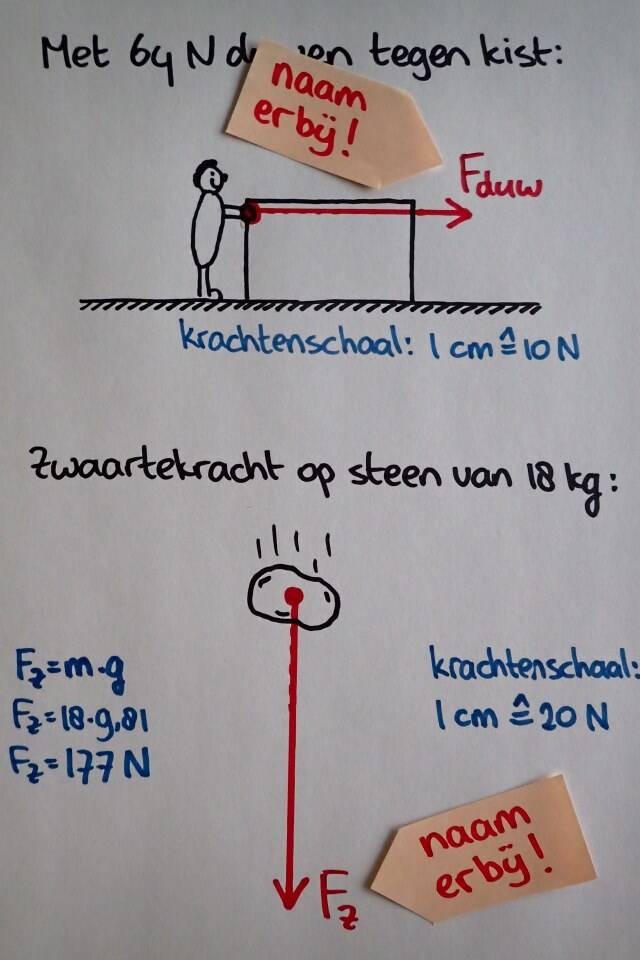 Met 64 N d wen tegen kist:
naam
erbij!
Fduw
krachtenschaal: 1 cm ≙ 10 N
Zwaartekracht op steen van 18 kg:
Fz = m·g
Fz = 18·9,81
Fz = 177 N
krachtenschaal:
1 cm ≙ 20 N
naam
erbij!
Fz